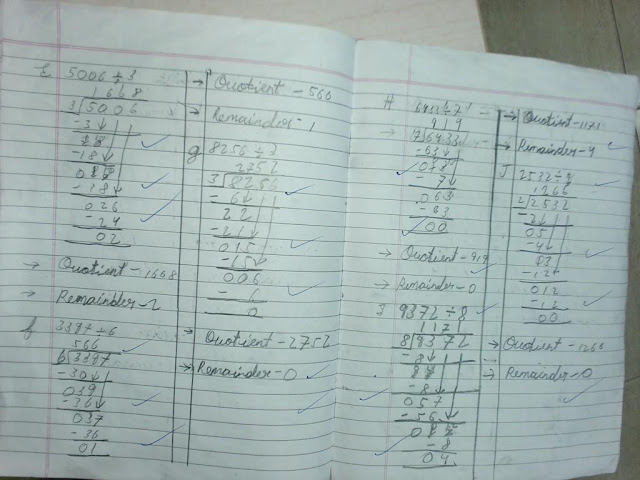 E 5006 ÷ 3
1668
3 5006
-3
20
-18
020
-18
026
-24
02
→ Quotient - 1668
→ Remainder - 2
f 3397 ÷ 6
566
6 3397
-30
039
-36
037
-36
01
→ Quotient - 566
→ Remainder - 1
g 8256 ÷ 3
2752
3 8256
-6
22
-21
015
-15
006
- 6
0
→ Quotient - 2752
→ Remainder - 0
H
919
7 6433
-63
0
7
063
-63
00
→ Quotient - 919
→ Remainder - 0
I 9372 ÷ 8
1171
8 9372
-8
-8
057
-56
0
-8
04
→ Quotient - 1171
→ Remainder - 4
J 2532 ÷ 2
1266
2 2532
-2
05
-4
13
-12
012
-12
00
→ Quotient - 1266
→ Remainder - 0